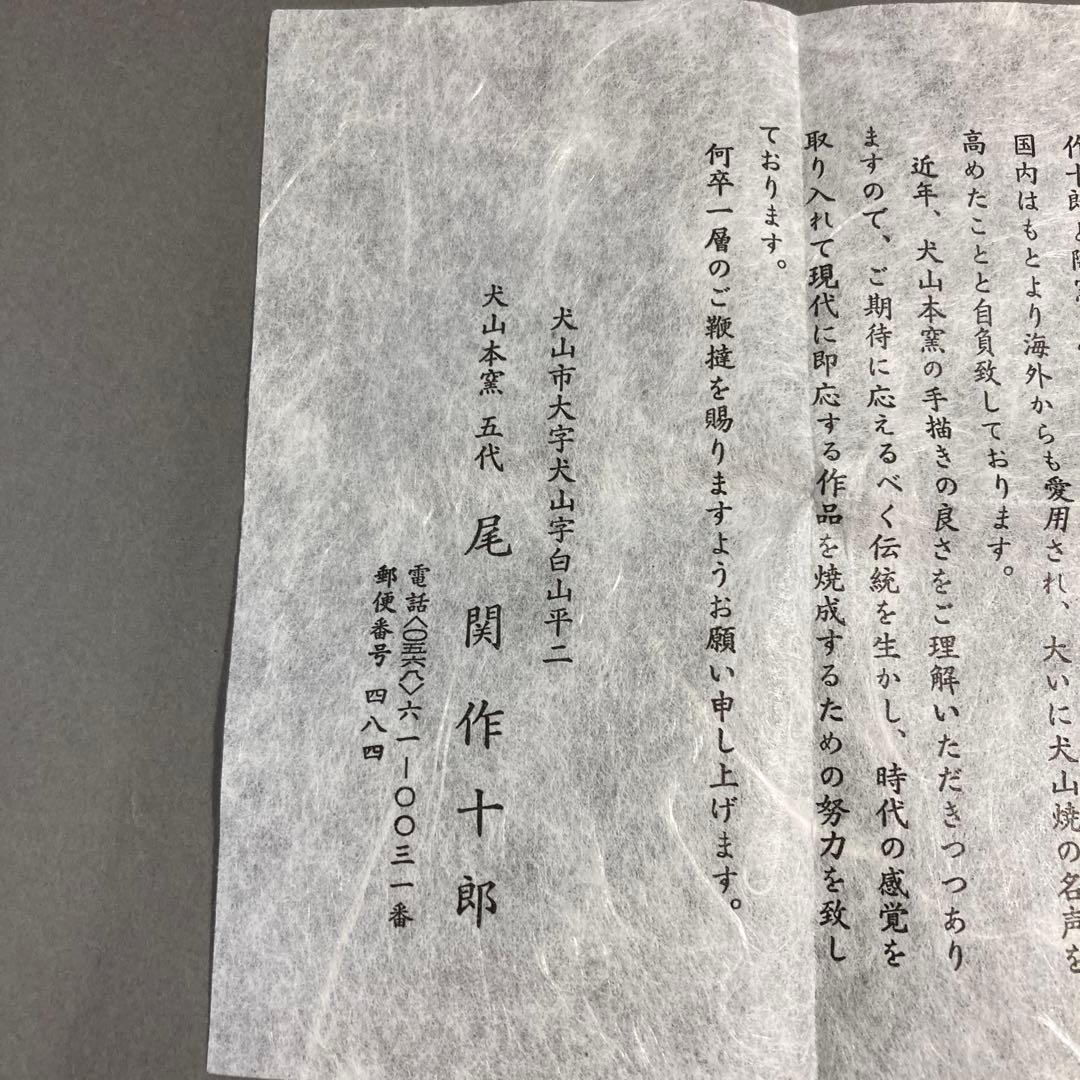 作十郎と
国内はもとより海外からも愛用され、大いに犬山焼の名声を
高めたことと自負致しております。
近年、犬山本窯の手描きの良さをご理解いただきつつあり
ますので、ご期待に応えるべく伝統を生かし、時代の感覚を
取り入れて現代に即応する作品を焼成するための努力を致し
ております。
何卒一層のご鞭撻を賜りますようお願い申し上げます。
犬山市大字犬山字白山平二
犬山本窯 五代 尾関作十郎
電話〈〇五六八〉六一―〇〇三一番
郵便番号 四八四